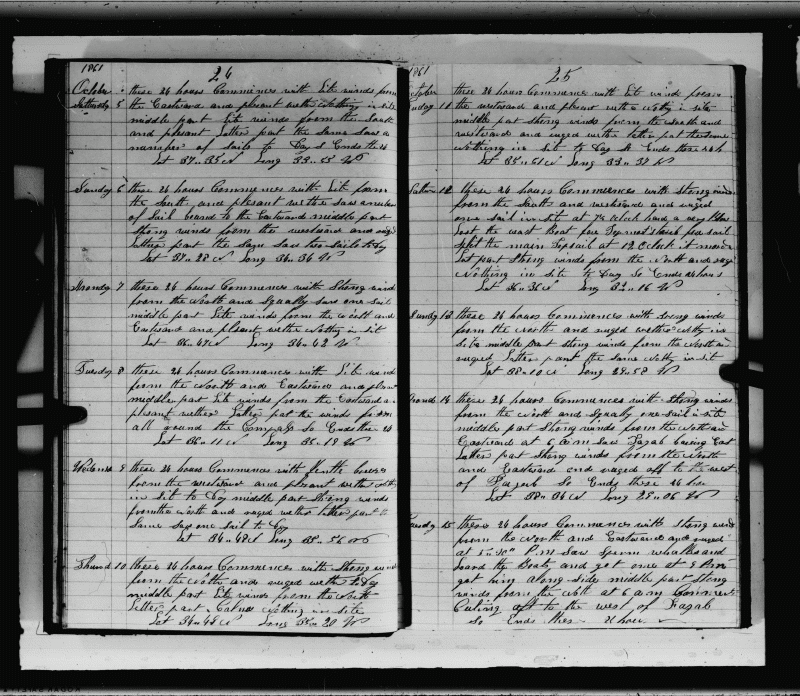 1861
24
October these 24 hours Commences with Lite winds from
Satturdy 5 the Eastward and plesant wether Nothing in site
middle part Lite winds from the South
and plesant latter part the Same Saw a
number of Sails to Day So Ends the 24
Lat 37 " 35 N Long 33 " 55 W
Sunday 6 these 24 hours Commences with Lite from
the South and plesant wether Saw a number
of Sail heard to the Eastward middle part
Strong winds from the westward and ruged
latter part the Same Saw two Sails to Day
Lat 37 " 28 N Long 34 " 36 W
Monday 7 these 24 hours Commences with Strong winds
from the North and Squally Saw one Sail
middle part Lite winds from the North and
Eastward and plesant wether Nothing in Sit
Lat 36 " 47 N Long 34 " 42 W
Tuesday 8 these 24 hours Commences with Lite winds
from the North and Eastward and
middle part Lite winds from the Eastward a
plesant wether latter part the winds from
all round the Compass So Ends the 24
Lat 36 " 11 N Long 35 " 19 W
9 these 24 hours Commences with
from the westward and plesant wether
in Sit to Day middle part Strong winds
from the North and ruged wether latter part the
Same Saw one Sail to Day
Lat 34 " 48 N Long 35 " 56 W
Thursd 10 these 24 hours Commences with Strong wind
from the North and ruged wether to Day
middle part Lite winds from the North
latter part Calm Nothing in Site
Lat 34 " 48 N Long 35 " 20 W
1861
25
October these 24 hours Commence with Lite winds from
11 the westward and plesant wether Nothing in Site
middle part Strong winds from the South and
westward and ruged wether latter part the Same
Nothing in Sit to Day So Ends these 24 h
Lat 35 " 51 N Long 33 " 37 W
12 these 24 hours Commences with Strong winds
from the South and westward and ruged
one Sail in Sit at 7 Oclock had a very
lost the wast Boat
Split the main Topsail at 12 Oclock
Lat part Strong winds from the North and ruged
Nothing in Site to Day So Ends 24 hours
Lat 36 " 36 N Long " 16 W
Sunday 13 these 24 hours Commences with Strong winds
from the North and ruged wether Nothing in
Site middle part Strong winds from the North and
ruged latter part the Same Nothing in Sit
Lat 38 " 10 N Long 29 " 58 W
Mond 14 these 24 hours Commences with Strong winds
from the North and Squally one Sail in Site
middle part Strong winds from the North and
Eastward at 6 am Saw Fayal baring East
latter part Strong winds from the North
and Eastward and ruged off to the west
of Fayal So Ends these 24 hours
Lat 38 " 34 N Long 29 " 06 W
Tuesday 15 these 24 hours Commences with Strong winds
from the North and Eastward and ruged
at P.m. Saw Sperm whales and
Loard the Boats and got one at 2 P.m
got him along Side middle part Strong
winds from the North at 6 am Commenced
Cuting off to the west of Fayal
So Ends thes 24 hour